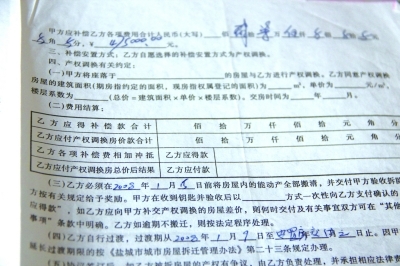 甲方应补偿乙方各项费用合计人民币(大写) 佰 拾 万 仟 佰 拾 元
角 分, ¥ 元。
三、补偿安置方式:乙方自愿选择的补偿安置方式为产权调换。
四、产权调换有关约定:
(一)甲方将座落于 的房屋与乙方进行产权调换。乙方同意产权调换
房屋的建筑面积(期房指约定的面积,现房指权属登记的面积)为 m²,单价为 元/m²,
楼层系数为 (总价=建筑面积×单价×楼层系数)。交房时间为 年 月。
(二)费用结算:
乙方应得补偿款合计 佰 拾 万 仟 佰 拾 元 角 分
乙方应付产权调换房价款合计 佰 拾 万 仟 佰 拾 元 角 分
乙方各项补偿费相加冲抵 乙方应得款
乙方应付产权调换房总价后结果 乙方应付款
(三)乙方必须在2008年1月8日前将房屋内的能动产全部搬清,并交付甲方验收拆
方按有关规定给予奖励。甲方在收到钥匙并验收后以 方式一次性向乙方支付确认的
应得款”,如乙方应向甲方补交产权调换的房屋差价,则何时交付及有关事宜双方可在“其他
事项”条款中明确。乙方如逾期不搬迁,则按法定程序处理。
(四)乙方自行过渡,过渡期从2008年1月9日至 日止。因甲
延长过渡期限的按《盐城市城市房屋拆迁管理办法》第二十三条规定办理。
乙方负责处理,并承担相应法律责